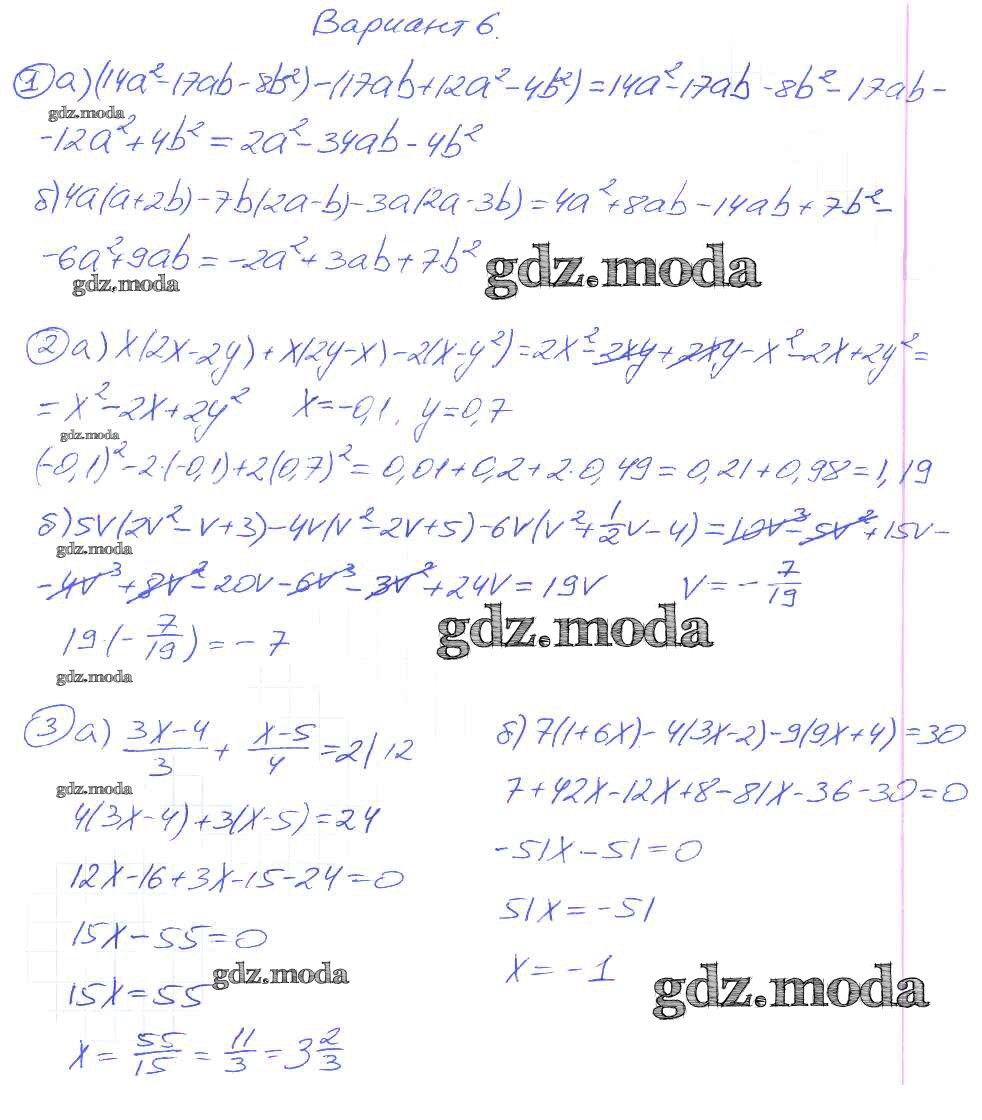 Вариант 6.
1 а) (14a² - 17ab - 8b²) - (17ab + 12a² - 4b²) = 14a² - 17ab - 8b² - 17ab -
gdz.moda
- 12a² + 4b² = 2a² - 34ab - 4b²
б) 4a(a + 2b) - 7b(2a - b) - 3a(2a - 3b) = 4a² + 8ab - 14ab + 7b² -
- 6a² + 9ab = -2a² + 3ab + 7b²
gdz.moda
gdz.moda
2 а) x(2x - 2y) + x(2y - x) - 2(x - y²) = 2x² - 2xy + 2xy - x² - 2x + 2y² =
= x² - 2x + 2y² x = -0,1, y = 0,7
gdz.moda
(-0,1)² - 2·(-0,1) + 2(0,7)² = 0,01 + 0,2 + 2·0,49 = 0,21 + 0,98 = 1,19
б) 5v(2v² - v + 3) - 4v(v² - 2v + 5) - 6v(v² + 1/2 v - 4) = 10v³ - 5v² + 15v -
gdz.moda
- 4v³ + 8v² - 20v - 6v³ - 3v² + 24v = 19v v = - 7/19
gdz.moda
19·(- 7/19) = - 7
gdz.moda
3 а) (3x-4)/3 + (x-5)/4 = 2 | 12
gdz.moda
4(3x - 4) + 3(x - 5) = 24
12x - 16 + 3x - 15 - 24 = 0
15x - 55 = 0
gdz.moda
15x = 55
x = 55/15 = 11/3 = 3 2/3
б) 7(1 + 6x) - 4(3x - 2) - 9(9x + 4) = 30
7 + 42x - 12x + 8 - 81x - 36 - 30 = 0
-51x - 51 = 0
51x = -51
x = -1
gdz.moda